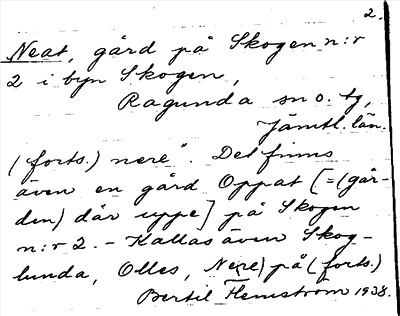 2.
Neat, gård på Skogen n:r
2 i byn Skogen,
Ragunda sn o. tg,
Jämtl. län.
(forts.) nere". Det finns
även en gård Oppat [=(går-
den) där uppe] på Skogen
n:r 2. – Kallas även Skog-
lunda, Olles, Nere) på (forts.)
Bertil Flemström 1938.